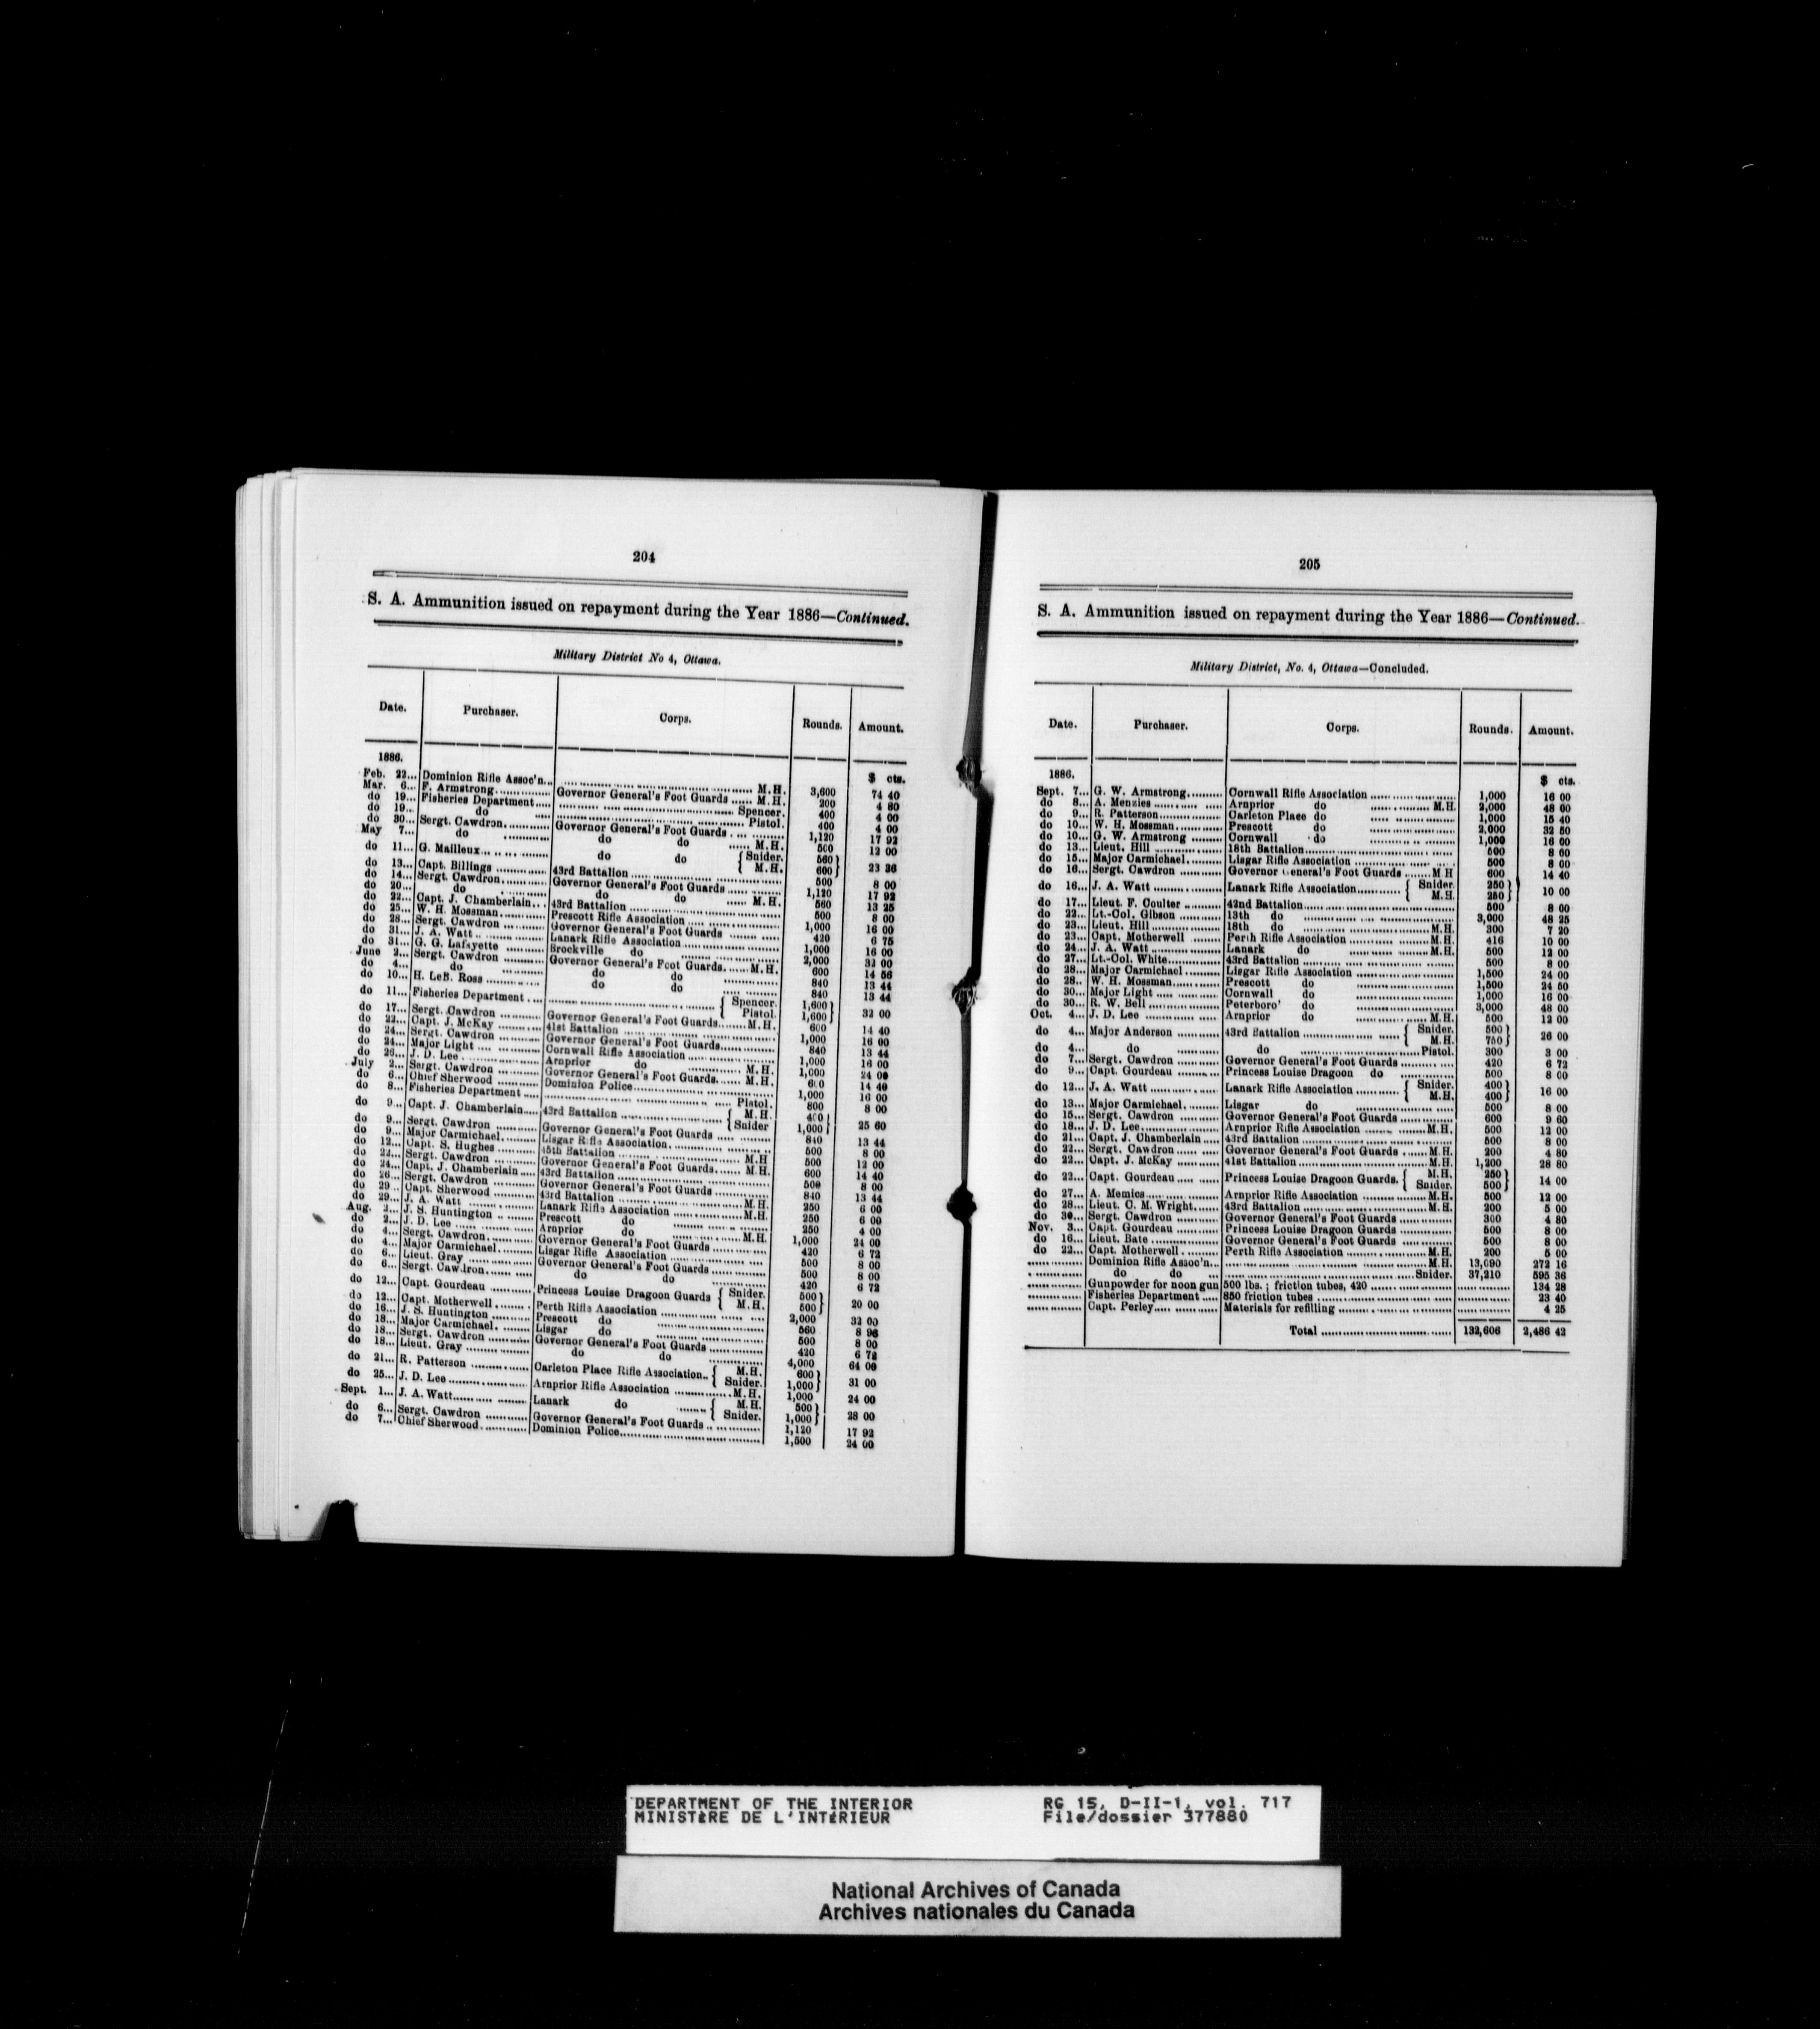 204
S. A. Ammunition issued on repayment during the Year 1886—Continued.
Military District No 4, Ottawa.
Date. Purchaser. Corps. Rounds. Amount.
1886. $ cts.
Feb. 22... Dominion Rifle Assoc'n... M.H. 3,600 74 40
Mar. 6... F. Armstrong... Governor General's Foot Guards ... M.H. 200 4 80
do 19... Fisheries Department... Spencer. 400 4 00
do 19... do ... Pistol. 400 4 00
do 30... Sergt. Cawdron... Governor General's Foot Guards ... 1,120 17 92
May 7... do ... do do ... M.H. 500 12 00
do 11... G. Mailleux... do do { Snider. 560 }
{ M.H. 600 } 23 36
do 13... Capt. Billings ... 43rd Battalion ... 500 8 00
do 14... Sergt. Cawdron... Governor General's Foot Guards ... 1,120 17 92
do 20... do ... do do ... M.H. 560 13 25
do 22... Capt. J. Chamberlain... 43rd Battalion ... 500 8 00
do 25... W. H. Mossman... Prescott Rifle Association ... 1,000 16 00
do 28... Sergt. Cawdron ... Governor General's Foot Guards ... 420 6 75
do 31... J. A. Watt ... Lanark Rifle Association ... 1,000 16 00
do 31... G. G. Lafayette ... Brockville do ... 2,000 32 00
June 2... Sergt. Cawdron ... Governor General's Foot Guards... M.H. 600 14 56
do 4... do ... do do ... 840 13 44
do 10... H. LeB. Ross ... do do ... 840 13 44
do 11... Fisheries Department ... { Spencer. 1,600 }
{ Pistol. 1,600 } 32 00
do 17... Sergt. Cawdron ... Governor General's Foot Guards... M.H. 600 14 40
do 22... Capt. J. McKay ... 41st Battalion ... 1,000 16 00
do 24... Sergt. Cawdron ... Governor General's Foot Guards... 840 13 44
do 24... Major Light ... Cornwall Rifle Association ... 1,000 16 00
do 26... J. D. Lee ... Arnprior do ... M.H. 1,000 24 00
July 2... Sergt. Cawdron ... Governor General's Foot Guards... M.H. 600 14 40
do 6... Chief Sherwood ... Dominion Police... 1,000 16 00
do 8... Fisheries Department ... Pistol. 800 8 00
do 9... Capt. J. Chamberlain... 43rd Battalion ... { M.H. 400 }
{ Snider 1,000 } 25 60
do 9... Sergt. Cawdron ... Governor General's Foot Guards ... 840 13 44
do 9... Major Carmichael... Lisgar Rifle Association. ... 500 8 00
do 12... Capt. S. Hughes ... 45th Battalion ... M.H 500 12 00
do 22... Sergt. Cawdron ... Governor General's Foot Guards... M.H. 600 14 40
do 24... Capt. J. Chamberlain ... 43rd Battalion ... 500 8 00
do 26... Sergt. Cawdron ... Governor General's Foot Guards ... 840 13 44
do 29... Capt. Sherwood ... 43rd Battalion ... M.H. 250 6 00
do 29... J. A. Watt ... Lanark Rifle Association ... M.H. 250 6 00
Aug. 2... J. S. Huntington ... Prescott do ... 250 4 00
do 2... J. D. Lee ... Arnprior do ... M.H. 1,000 24 00
do 4... Sergt. Cawdron... Governor General's Foot Guards ... 420 6 72
do 4... Major Carmichael... Lisgar Rifle Association ... 500 8 00
do 6... Lieut. Gray ... Governor General's Foot Guards ... 500 8 00
do 6... Sergt. Cawdron... do do ... 420 6 72
do 12... Capt. Gourdeau ... Princess Louise Dragoon Guards { Snider. 500 }
{ M.H. 500 } 20 00
do 12... Capt. Motherwell ... Perth Rifle Association ... 2,000 32 00
do 16... J. S. Huntington ... Prescott do ... 560 8 96
do 18... Major Carmichael. ... Lisgar do ... 500 8 00
do 18... Sergt. Cawdron ... Governor General's Foot Guards ... 420 6 72
do 18... Lieut. Gray ... do do ... 4,000 64 00
do 21... R. Patterson ... Carleton Place Rifle Association.. { M.H. 600 }
{ Snider. 1,000 } 31 00
do 25... J. D. Lee ... Arnprior Rifle Association ... M.H. 1,000 24 00
Sept. 1... J. A. Watt... Lanark do ... { M.H. 500 }
{ Snider. 1,000 } 28 00
do 6... Sergt. Cawdron ... Governor General's Foot Guards ... 1,120 17 92
do 7... Chief Sherwood... Dominion Police... 1,500 24 00
205
S. A. Ammunition issued on repayment during the Year 1886—Continued.
Military District, No. 4, Ottawa—Concluded.
Date. Purchaser. Corps. Rounds. Amount.
1886. $ cts.
Sept. 7... G. W. Armstrong... Cornwall Rifle Association ... 1,000 16 00
do 8... A. Menzies ... Arnprior do ... M.H. 2,000 48 00
do 9... R. Patterson... Carleton Place do ... 1,000 15 40
do 10... W. H. Mossman... Prescott do ... 2,000 32 50
do 10... G. W. Armstrong ... Cornwall do ... 1,000 16 00
do 13... Lieut. Hill ... 18th Battalion... 500 8 60
do 15... Major Carmichael... Lisgar Rifle Association ... 500 8 00
do 16... Sergt. Cawdron ... Governor General's Foot Guards ... M.H 600 14 40
do 16... J. A. Watt ... Lanark Rifle Association... { Snider. 250 }
{ M.H. 250 } 10 00
do 17... Lieut. F. Coulter ... 42nd Battalion... 500 8 00
do 22... Lt.-Col. Gibson ... 13th do ... 3,000 48 25
do 23... Lieut. Hill ... 18th do ... M.H. 300 7 20
do 23... Capt. Motherwell ... Perth Rifle Association ... M.H. 416 10 00
do 24... J. A. Watt ... Lanark do ... M.H. 500 12 00
do 27... Lt.-Col. White... 43rd Battalion ... 500 8 00
do 28... Major Carmichael ... Lisgar Rifle Association ... 1,500 24 00
do 28... W. H. Mossman... Prescott do ... 1,500 24 50
do 30... Major Light ... Cornwall do ... 1,000 16 00
do 30... R. W. Bell ... Peterboro' do ... 3,000 48 00
Oct. 4... J. D. Lee ... Arnprior do ... M.H. 500 12 00
do 4... Major Anderson ... 43rd Battalion ... { Snider. 500 }
{ M.H. 750 } 26 00
do 4... do ... do ... Pistol. 300 3 00
do 7... Sergt. Cawdron ... Governor General's Foot Guards ... 420 6 72
do 9... Capt. Gourdeau ... Princess Louise Dragoon do ... 500 8 00
do 12... J. A. Watt ... Lanark Rifle Association ... { Snider. 400 }
{ M.H. 400 } 16 00
do 13... Major Carmichael... Lisgar do ... 500 8 00
do 15... Sergt. Cawdron ... Governor General's Foot Guards ... 600 9 60
do 18... J. D. Lee... Arnprior Rifle Association ... M.H. 500 12 00
do 21... Capt. J. Chamberlain ... 43rd Battalion ... 500 8 00
do 22... Sergt. Cawdron ... Governor General's Foot Guards ... M.H. 200 4 80
do 22... Capt. J. McKay ... 41st Battalion ... M.H. 1,200 28 80
do 22... Capt. Gourdeau ... Princess Louise Dragoon Guards. { M.H. 250 }
{ Snider. 500 } 14 00
do 27... A. Memics ... Arnprior Rifle Association ... M.H. 500 12 00
do 28... Lieut. C. M. Wright... 43rd Battalion ... M.H. 200 5 00
do 30... Sergt. Cawdron ... Governor General's Foot Guards ... 300 4 80
Nov. 3... Capt. Gourdeau ... Princess Louise Dragoon Guards ... 500 8 00
do 16... Lieut. Bate ... Governor General's Foot Guards ... 500 8 00
do 22... Capt. Motherwell ... Perth Rifle Association ... M.H. 200 5 00
... Dominion Rifle Assoc'n... M.H. 13,090 272 16
... do do ... Snider. 37,210 595 36
... Gunpowder for noon gun 500 lbs. ; friction tubes, 420 ... 134 28
... Fisheries Department ... 850 friction tubes ... 23 40
... Capt. Perley... Materials for refilling ... 4 25
Total ... 132,606 2,486 42
DEPARTMENT OF THE INTERIOR RG 15, D-II-1, vol. 717
MINISTÈRE DE L'INTÉRIEUR File/dossier 377880
National Archives of Canada
Archives nationales du Canada